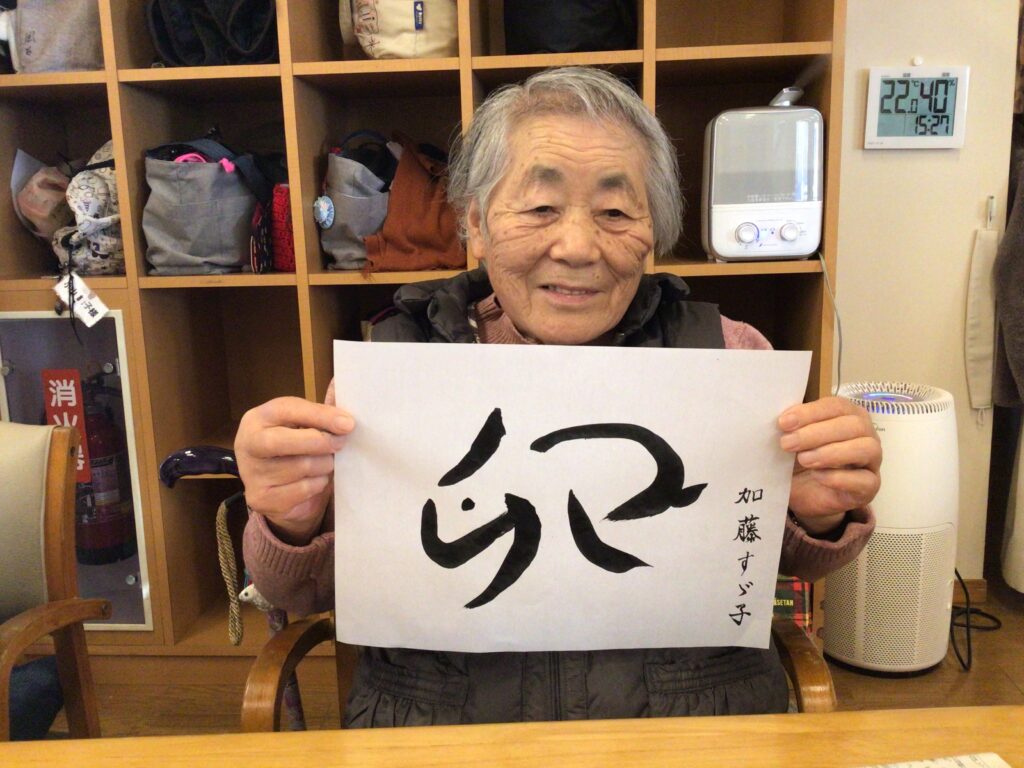 22.0℃ 40%
15:27
消火器
卯
加藤すゞ子